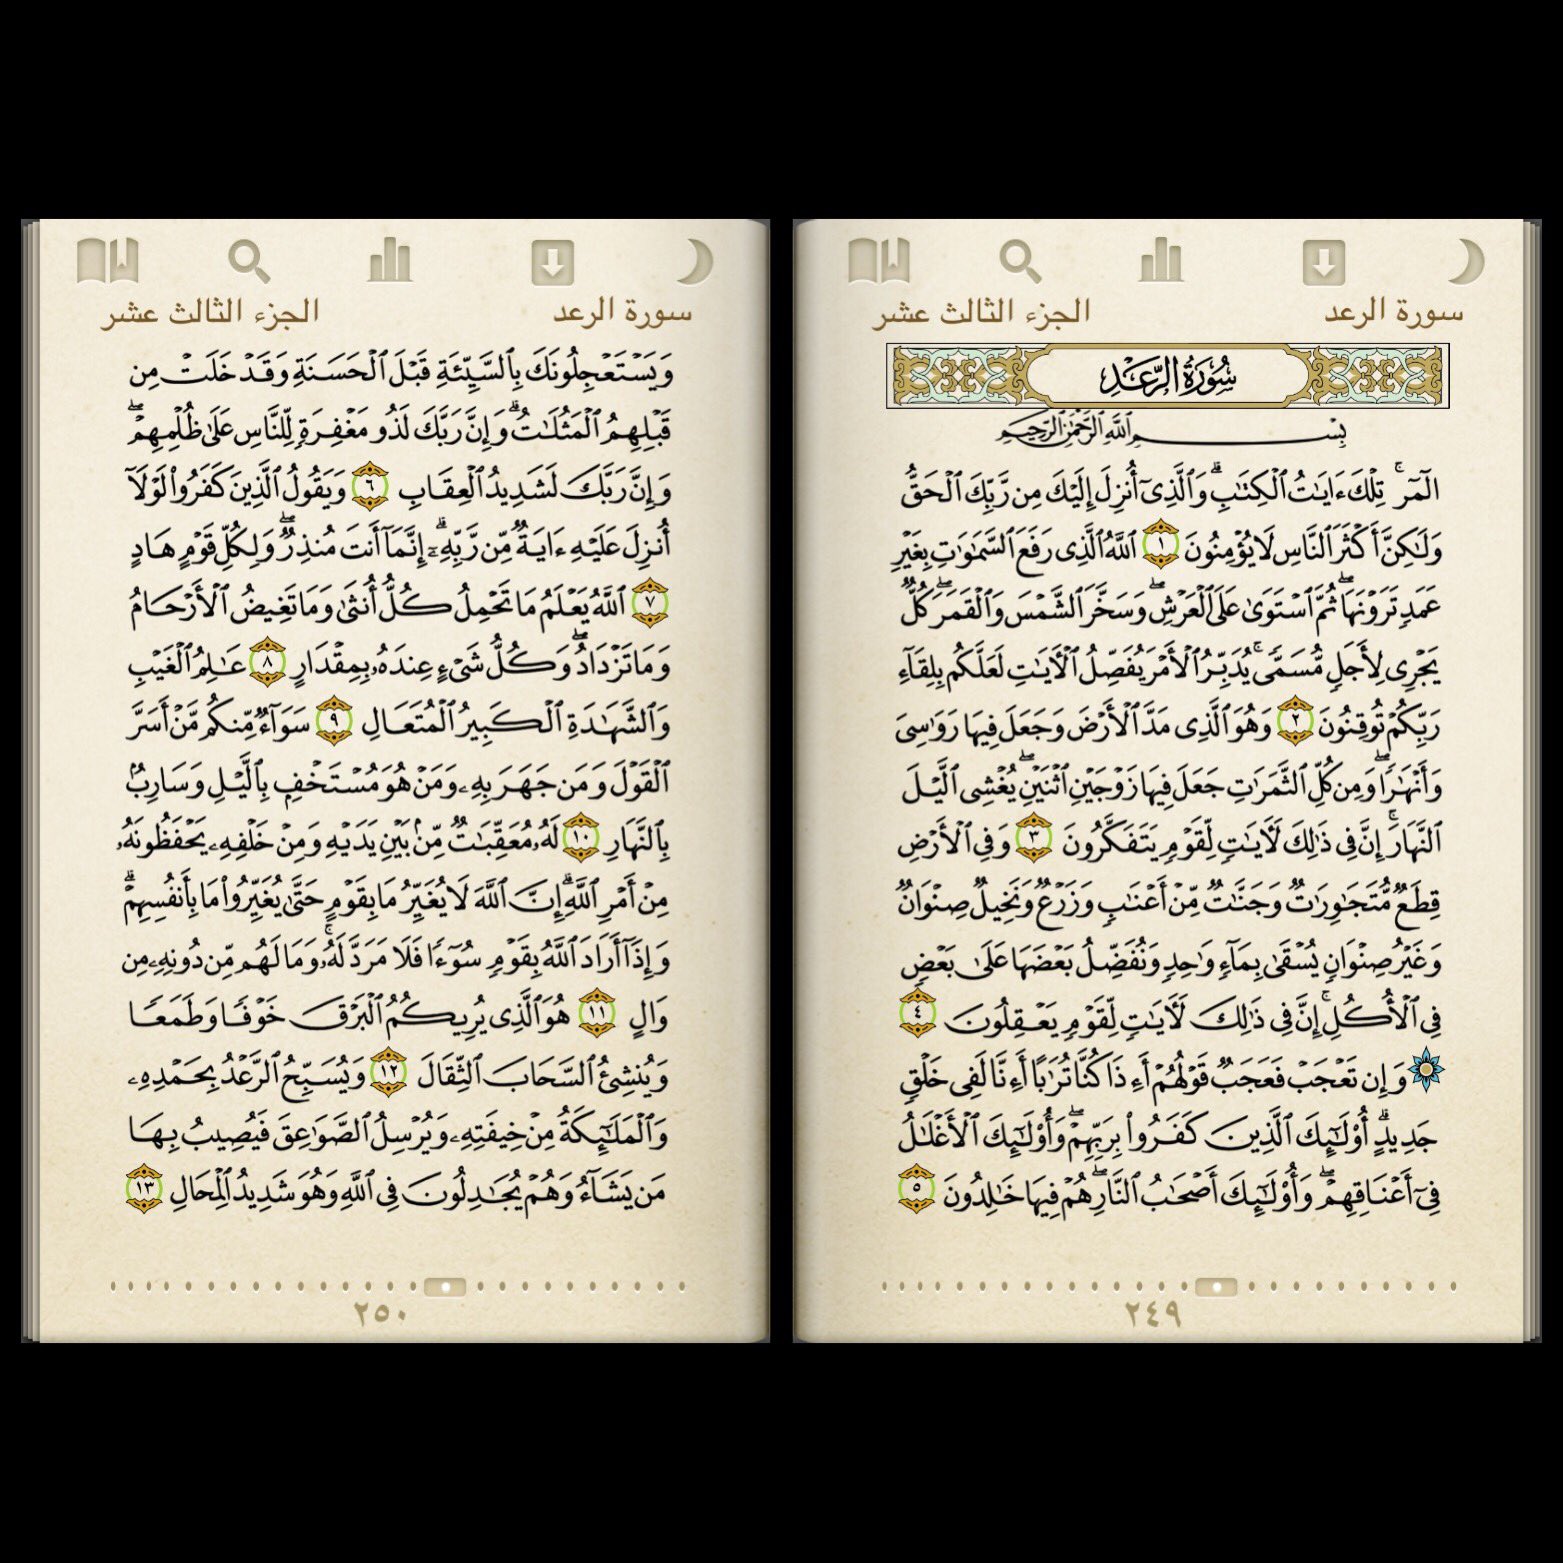 سورة الرعد الجزء الثالث عشر
سُورَةُ الرَّعْدِ
بِسْمِ ٱللَّهِ ٱلرَّحْمَٰنِ ٱلرَّحِيمِ
الٓمٓر ۚ تِلْكَ ءَايَٰتُ ٱلْكِتَٰبِ ۗ وَٱلَّذِىٓ أُنزِلَ إِلَيْكَ مِن رَّبِّكَ ٱلْحَقُّ
وَلَٰكِنَّ أَكْثَرَ ٱلنَّاسِ لَا يُؤْمِنُونَ ١ ٱللَّهُ ٱلَّذِى رَفَعَ ٱلسَّمَٰوَٰتِ بِغَيْرِ
عَمَدٍ تَرَوْنَهَا ۖ ثُمَّ ٱسْتَوَىٰ عَلَى ٱلْعَرْشِ ۖ وَسَخَّرَ ٱلشَّمْسَ وَٱلْقَمَرَ ۖ كُلٌّ
يَجْرِى لِأَجَلٍ مُّسَمًّى ۚ يُدَبِّرُ ٱلْأَمْرَ يُفَصِّلُ ٱلْءَايَٰتِ لَعَلَّكُم بِلِقَآءِ
رَبِّكُمْ تُوقِنُونَ ٢ وَهُوَ ٱلَّذِى مَدَّ ٱلْأَرْضَ وَجَعَلَ فِيهَا رَوَٰسِىَ
وَأَنْهَٰرًا ۖ وَمِن كُلِّ ٱلثَّمَرَٰتِ جَعَلَ فِيهَا زَوْجَيْنِ ٱثْنَيْنِ ۖ يُغْشِى ٱلَّيْلَ
ٱلنَّهَارَ ۚ إِنَّ فِى ذَٰلِكَ لَءَايَٰتٍ لِّقَوْمٍ يَتَفَكَّرُونَ ٣ وَفِى ٱلْأَرْضِ
قِطَعٌ مُّتَجَٰوِرَٰتٌ وَجَنَّٰتٌ مِّنْ أَعْنَٰبٍ وَزَرْعٌ وَنَخِيلٌ صِنْوَانٌ
وَغَيْرُ صِنْوَانٍ يُسْقَىٰ بِمَآءٍ وَٰحِدٍ وَنُفَضِّلُ بَعْضَهَا عَلَىٰ بَعْضٍ
فِى ٱلْأُكُلِ ۚ إِنَّ فِى ذَٰلِكَ لَءَايَٰتٍ لِّقَوْمٍ يَعْقِلُونَ ٤
وَإِن تَعْجَبْ فَعَجَبٌ قَوْلُهُمْ أَءِذَا كُنَّا تُرَٰبًا أَءِنَّا لَفِى خَلْقٍ
جَدِيدٍ ۗ أُو۟لَٰٓئِكَ ٱلَّذِينَ كَفَرُوا۟ بِرَبِّهِمْ ۖ وَأُو۟لَٰٓئِكَ ٱلْأَغْلَٰلُ
فِىٓ أَعْنَاقِهِمْ ۖ وَأُو۟لَٰٓئِكَ أَصْحَٰبُ ٱلنَّارِ ۖ هُمْ فِيهَا خَٰلِدُونَ ٥
٢٤٩
سورة الرعد الجزء الثالث عشر
وَيَسْتَعْجِلُونَكَ بِٱلسَّيِّئَةِ قَبْلَ ٱلْحَسَنَةِ وَقَدْ خَلَتْ مِن
قَبْلِهِمُ ٱلْمَثُلَٰتُ ۗ وَإِنَّ رَبَّكَ لَذُو مَغْفِرَةٍ لِّلنَّاسِ عَلَىٰ ظُلْمِهِمْ ۖ
وَإِنَّ رَبَّكَ لَشَدِيدُ ٱلْعِقَابِ ٦ وَيَقُولُ ٱلَّذِينَ كَفَرُوا۟ لَوْلَآ
أُنزِلَ عَلَيْهِ ءَايَةٌ مِّن رَّبِّهِۦٓ ۗ إِنَّمَآ أَنتَ مُنذِرٌ ۖ وَلِكُلِّ قَوْمٍ هَادٍ
٧ ٱللَّهُ يَعْلَمُ مَا تَحْمِلُ كُلُّ أُنثَىٰ وَمَا تَغِيضُ ٱلْأَرْحَامُ
وَمَا تَزْدَادُ ۖ وَكُلُّ شَىْءٍ عِندَهُۥ بِمِقْدَارٍ ٨ عَٰلِمُ ٱلْغَيْبِ
وَٱلشَّهَٰدَةِ ٱلْكَبِيرُ ٱلْمُتَعَالِ ٩ سَوَآءٌ مِّنكُم مَّنْ أَسَرَّ
ٱلْقَوْلَ وَمَن جَهَرَ بِهِۦ وَمَنْ هُوَ مُسْتَخْفٍۭ بِٱلَّيْلِ وَسَارِبٌۢ
بِٱلنَّهَارِ ١٠ لَهُۥ مُعَقِّبَٰتٌ مِّنۢ بَيْنِ يَدَيْهِ وَمِنْ خَلْفِهِۦ يَحْفَظُونَهُۥ
مِنْ أَمْرِ ٱللَّهِ ۗ إِنَّ ٱللَّهَ لَا يُغَيِّرُ مَا بِقَوْمٍ حَتَّىٰ يُغَيِّرُوا۟ مَا بِأَنفُسِهِمْ ۗ
وَإِذَآ أَرَادَ ٱللَّهُ بِقَوْمٍ سُوٓءًا فَلَا مَرَدَّ لَهُۥ ۚ وَمَا لَهُم مِّن دُونِهِۦ مِن
وَالٍ ١١ هُوَ ٱلَّذِى يُرِيكُمُ ٱلْبَرْقَ خَوْفًا وَطَمَعًا
وَيُنشِئُ ٱلسَّحَابَ ٱلثِّقَالَ ١٢ وَيُسَبِّحُ ٱلرَّعْدُ بِحَمْدِهِۦ
وَٱلْمَلَٰٓئِكَةُ مِنْ خِيفَتِهِۦ وَيُرْسِلُ ٱلصَّوَٰعِقَ فَيُصِيبُ بِهَا
مَن يَشَآءُ وَهُمْ يُجَٰدِلُونَ فِى ٱللَّهِ وَهُوَ شَدِيدُ ٱلْمِحَالِ ١٣
٢٥٠